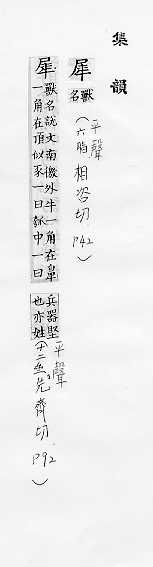 集韻
犀 獸名(六脂 平聲 相咨切. P42)
犀 獸名說文南徼外牛一角在鼻一角在頂似豕一曰瓠中一曰兵器堅也亦姓(十二齊 平聲 先齊切. P92)